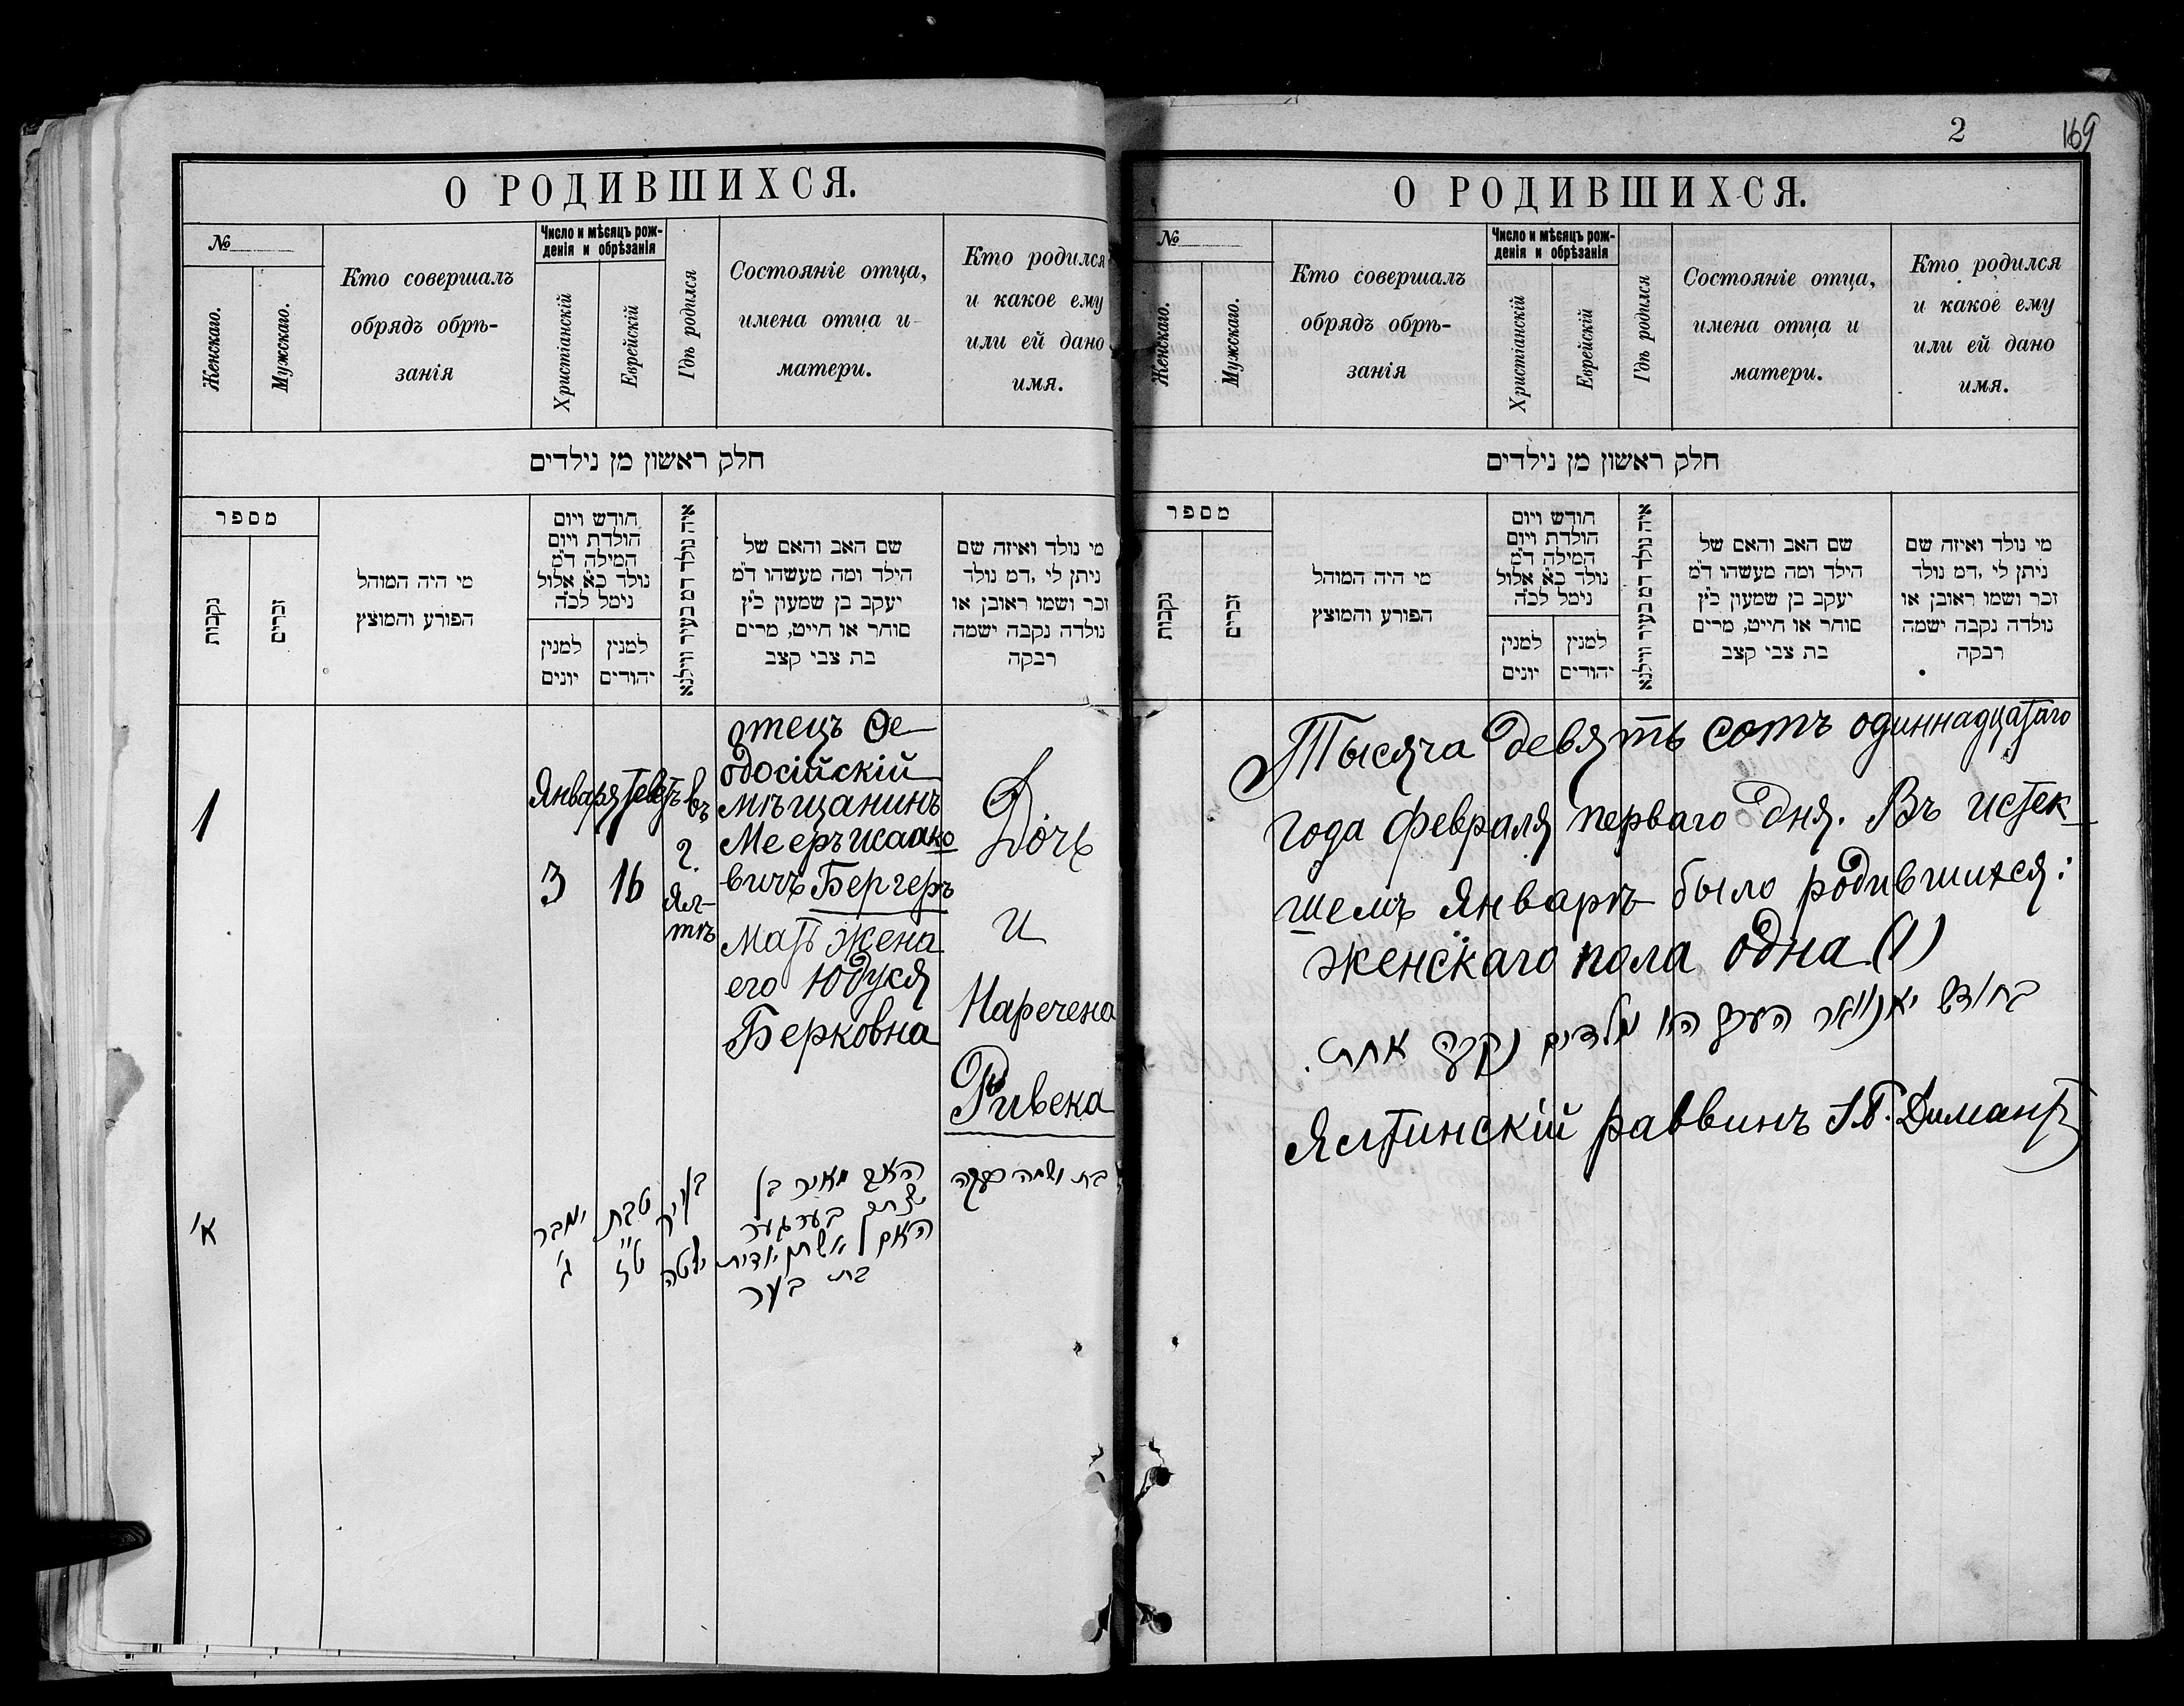 О РОДИВШИХСЯ.
№
Женскаго.
Мужскаго.
Кто совершалъ
обрядъ обрѣ-
занія
Число и мѣсяцъ рож-
денія и обрѣзанія
Христіанскій
Еврейскій
Гдѣ родился
Состояніе отца,
имена отца и
матери.
Кто родился
и какое ему
или ей дано
имя.
חלק ראשון מן נילדים
מספר
נקבות
זכרים
מי היה המוהל
הפורע והמוצץ
חודש ויום
הולדת ויום
המילה ד"מ
נולד כ"א אלול
נימל לכ"ה
למנין
יונים
למנין
יהודים
איה נולד דמ בעיר ווילנא
שם האב והאם של
הילד ומה מעשהו ד"מ
יעקב בן שמעון כ"ץ
סוחר או חייט, מרים
בת צבי קצב
מי נולד ואיזה שם
ניתן לי ,דמ נולד
זכר ושמו ראובן או
נולדה נקבה ישמה
רבקה
1
Января
3
16
въ
г.
Ял-
тѣ
отецъ Ѳе-
одосійскій
мѣщанинъ
Мееръ Исаако
вичъ Бергеръ
Мать жена
его Юдукя
Берковна
Дочь
и
Наречена
Ривека
א'
ינובר
ג'
טבת
ט"ז
בעיר
ילטה
האב מאיר בן
יצחק בערגער
האם אשתו יודית
בת בער
בת ושמה רבקה
2
169
О РОДИВШИХСЯ.
№
Женскаго.
Мужскаго.
Кто совершалъ
обрядъ обрѣ-
занія
Число и мѣсяцъ рож-
денія и обрѣзанія
Христіанскій
Еврейскій
Гдѣ родился
Состояніе отца,
имена отца и
матери.
Кто родился
и какое ему
или ей дано
имя.
חלק ראשון מן נילדים
מספר
נקבות
זכרים
מי היה המוהל
הפורע והמוצץ
חודש ויום
הולדת ויום
המילה ד"מ
נולד כ"א אלול
נימל לכ"ה
למנין
יונים
למנין
יהודים
איה נולד דמ בעיר ווילנא
שם האב והאם של
הילד ומה מעשהו ד"מ
יעקב בן שמעון כ"ץ
סוחר או חייט, מרים
בת צבי קצב
מי נולד ואיזה שם
ניתן לי ,דמ נולד
זכר ושמו ראובן או
נולדה נקבה ישמה
רבקה
Тысяча девять сотъ одиннадцатаго
года февраля перваго дня. Въ истек-
шемъ Январѣ было родившихся:
женскаго пола одна (1)
בחודש יאנוואר העבר היו נולדים נקבה אחת.
Ялтинскій раввинъ І.Б. Димантъ